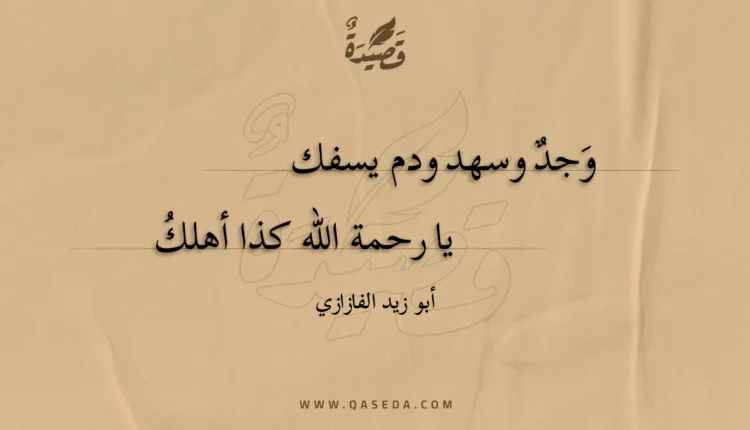 قَصِيْدَةٌ
وَجدٌ وسهد ودم يسفك
يا رحمة الله كذا أهلكُ
أبو زيد الفازازي
WWW.QASEDA.COM